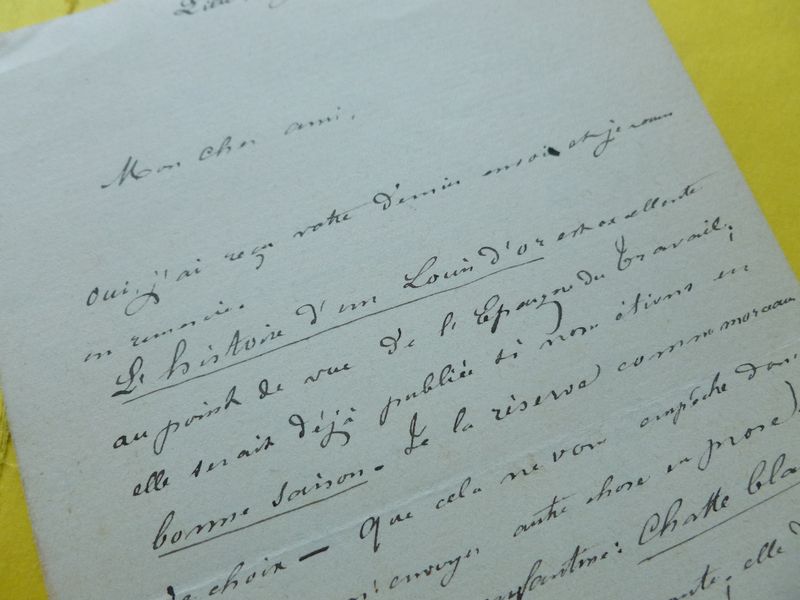 Mon cher ami,
oui, j'ai reçu votre dernier envoi et je vous
en remercie.
L'histoire d'un Louis d'or est excellente
au point de vue de l'Epargne du travail;
elle serait déjà publiée si nous étions en
bonne saison. Je la réserve comme morceau
de choix — que cela ne vous empêche donc
m'envoyer autre chose en prose)
enfantine: Chatte bla
elle d